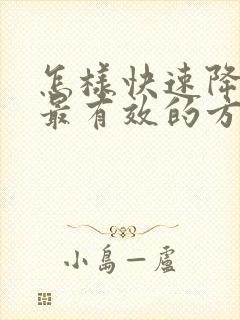 怎樣快速降
最有效的方
小島一盧